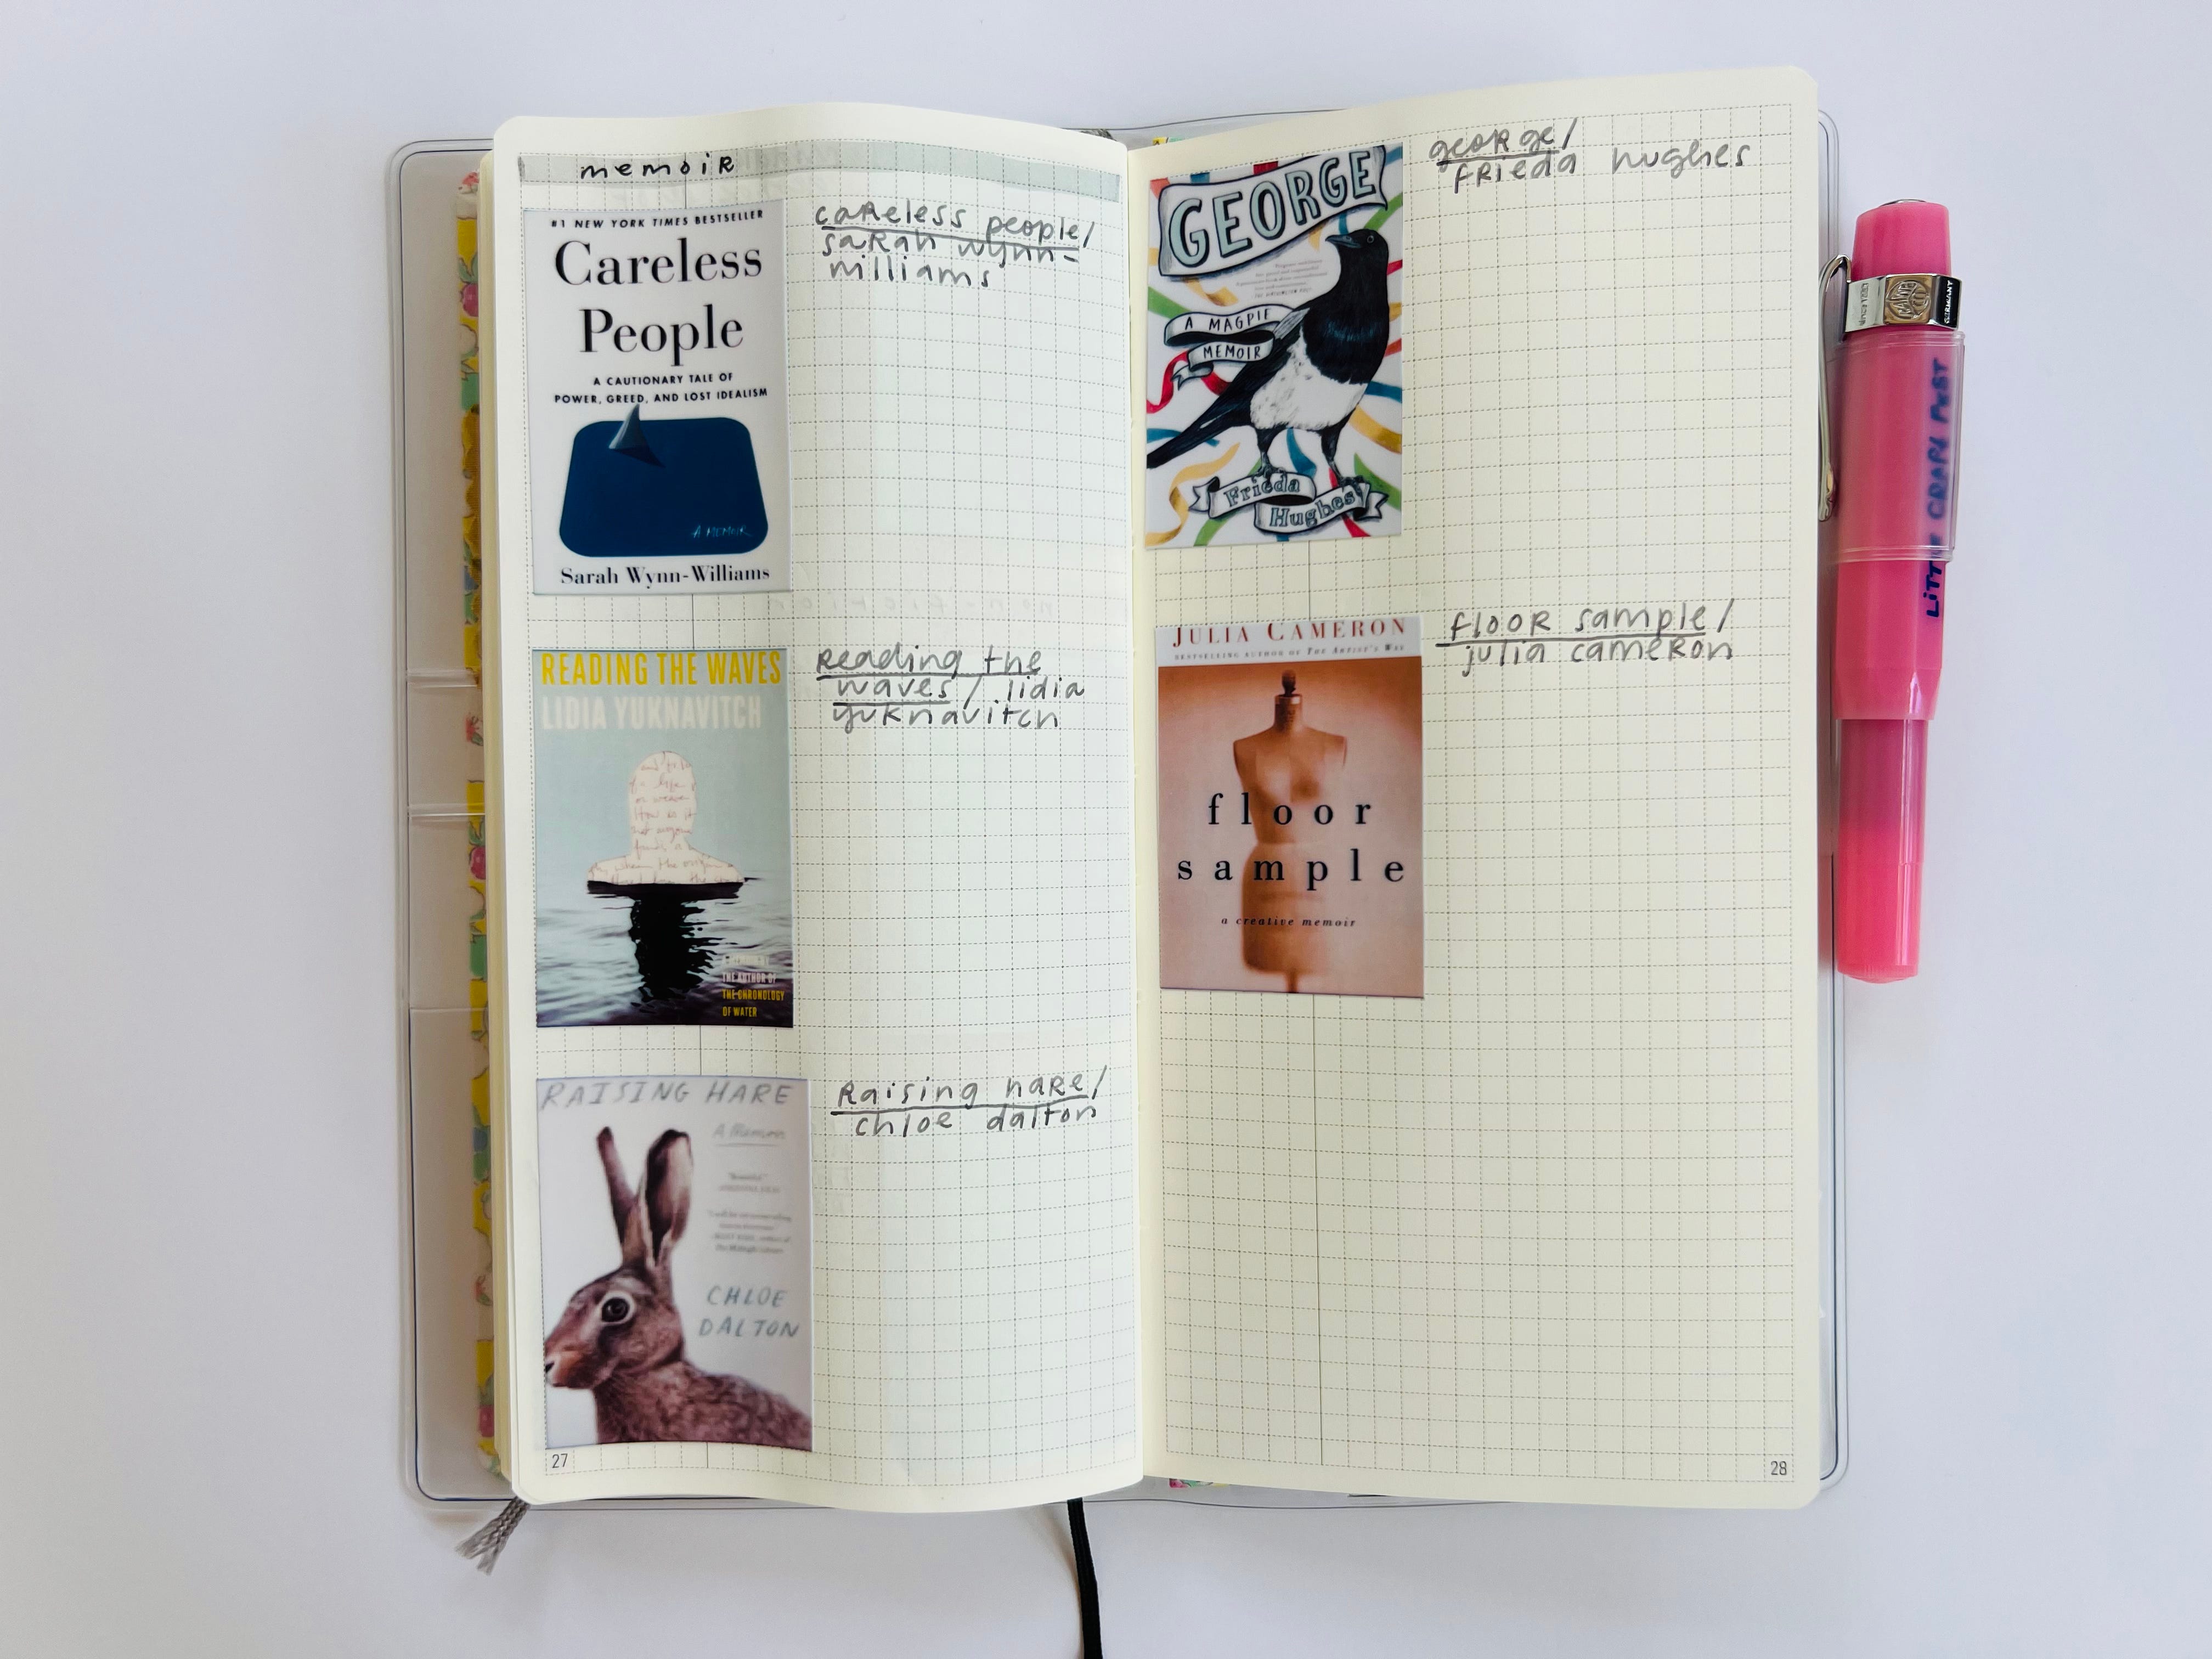 memoir
#1 NEW YORK TIMES BESTSELLER
Careless
People
A CAUTIONARY TALE OF
POWER, GREED, AND LOST IDEALISM
A MEMOIR
Sarah Wynn-Williams
careless people/
sarah wynn-
williams
READING THE WAVES
LIDIA YUKNAVITCH
THE AUTHOR OF
THE CHRONOLOGY
OF WATER
reading the
waves / lidia
yuknavitch
RAISING HARE
A Memoir
CHLOE
DALTON
raising hare/
chloe dalton
27
GEORGE
A MAGPIE
MEMOIR
Frieda
Hughes
george/
frieda hughes
JULIA CAMERON
BESTSELLING AUTHOR OF THE ARTIST'S WAY
floor
sample
a creative memoir
floor sample/
julia cameron
28
GERMANY
CRAPH FEST